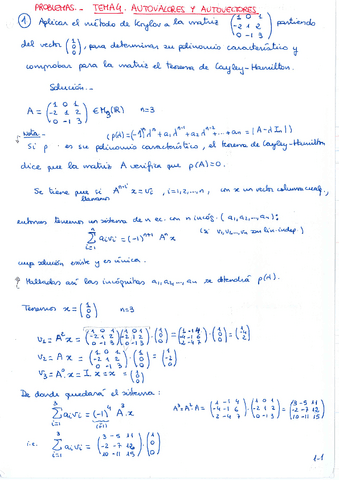 PROBLEMAS.- TEMA 9. AUTOVALORES Y AUTOVECTORES
① Aplicar el método de Krylov a la matriz (1 0 1 / -2 1 2 / 0 -1 3) partiendo
del vector (1 / 0 / 0), para determinar su polinomio característico y
comprobar para la matriz el teorema de Cayley-Hamilton.
Solución.-
A = (1 0 1 / -2 1 2 / 0 -1 3) ∈ M₃(ℝ) n=3
Nota.- (p(λ)=(-1)ⁿλⁿ + a₁λⁿ⁻¹ + a₂λⁿ⁻² + ... + aₙ = |A-λIₙ|)
Si p es su polinomio característico, el teorema de Cayley-Hamilton
dice que la matriz A verifica que p(A)=0.
Se tiene que si llamamos Aⁿ⁻ⁱ x = vᵢ, i=1,2,...,n, con x un vector columna cualq.,
entonces tenemos un sistema de n ec. con n incóg. (a₁,a₂,...,aₙ):
∑ᵢ₌₁ⁿ aᵢvᵢ = (-1)ⁿ⁺¹ Aⁿx (si v₁,v₂,...,vₙ son lin. indep.)
cuya solución existe y es única.
Halladas así las incógnitas a₁,a₂,...,aₙ se obtendrá p(λ).
Tenemos x = (1 / 0 / 0) n=3
v₁ = A²x = (1 0 1 / -2 1 2 / 0 -1 3)(1 0 1 / -2 1 2 / 0 -1 3)·(1 / 0 / 0) = (1 -1 4 / -4 -1 6 / 2 -4 7)·(1 / 0 / 0) = (1 / -4 / 2)
v₂ = A x = (1 0 1 / -2 1 2 / 0 -1 3)·(1 / 0 / 0) = (1 / -2 / 0)
v₃ = A⁰·x = I·x = x = (1 / 0 / 0)
De donde quedará el sistema:
∑ᵢ₌₁³ aᵢvᵢ = (-1)⁴ A³·x A³=A²·A = (1 -1 4 / -4 -1 6 / 2 -4 7)·(1 0 1 / -2 1 2 / 0 -1 3) = (3 -5 11 / -2 -7 12 / 10 -11 15)
i.e. ∑ᵢ₌₁³ aᵢvᵢ = (3 -5 11 / -2 -7 12 / 10 -11 15)·(1 / 0 / 0)
1-1